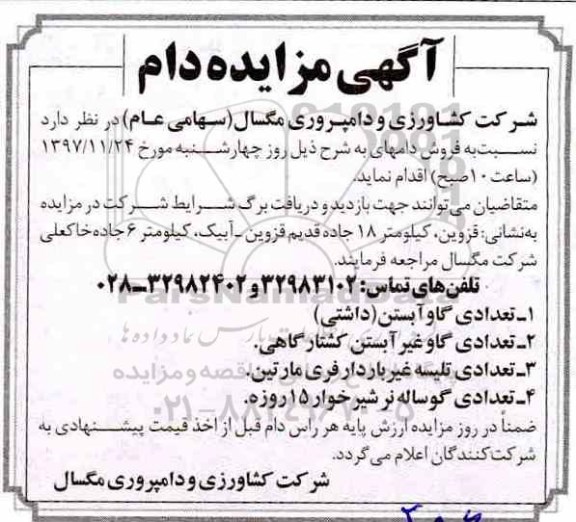 آگهی مزایده دام
شرکت کشاورزی و دامپروری مگسال (سهامی عام) در نظر دارد
نسبت به فروش دامهای به شرح ذیل روز چهارشنبه مورخ ۱۳۹۷/۱۱/۲۴
(ساعت ۱۰ صبح) اقدام نماید.
متقاضیان می‌توانند جهت بازدید و دریافت برگ شرایط شرکت در مزایده
به‌نشانی: قزوین، کیلومتر ۱۸ جاده قدیم قزوین - آبیک، کیلومتر ۶ جاده خاکعلی
شرکت مگسال مراجعه فرمایند.
تلفن‌های تماس: ۳۲۹۸۳۱۰۲ و ۳۲۹۸۲۴۰۲-۰۲۸
ParsNamadData
۱- تعدادی گاو آبستن (داشتی)
۲- تعدادی گاو غیر آبستن کشتارگاهی.
۳- تعدادی تلیسه غیر باردار فری مارتین.
۴- تعدادی گوساله نر شیرخوار ۱۵ روزه.
۰۲۱-۸۸۳۴۹۶۷۰-۵
ضمناً در روز مزایده ارزش پایه هر راس دام قبل از اخذ قیمت پیشنهادی به
شرکت‌کنندگان اعلام می‌گردد.
شرکت کشاورزی و دامپروری مگسال